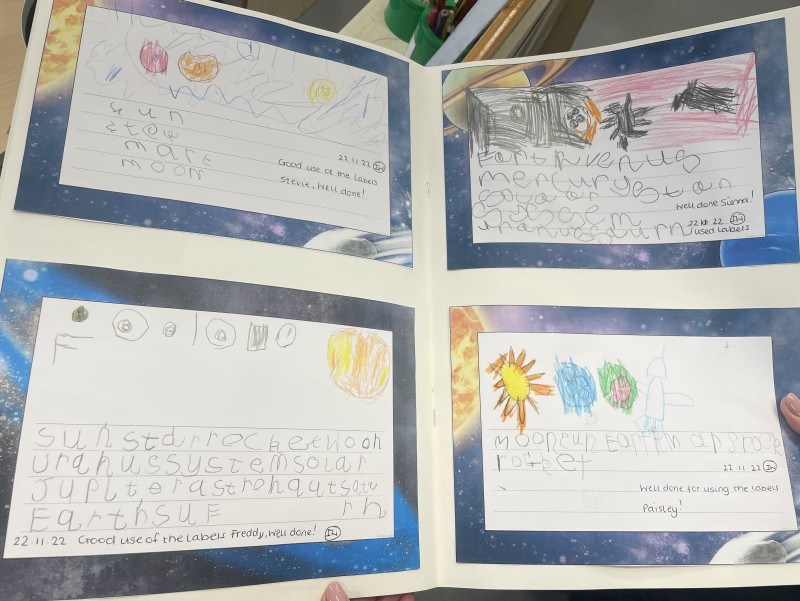 sun
stow
mars
moon
22.11.22 IW
Good use of the labels
Stevie. Well done!
EartPvenus
mercurystan
Well done Sienna!
22.11.22 IW
used labels
F
sunstdrrocketwoon
uranussystemsolar
Jupiterastronqutsotu
EarthSUF rn
22.11.22 Good use of the labels Freddy, Well done! IW
MoonsunEarthmapsrock
rocket
22.11.22 IW
Well done for using the labels
Paisley!